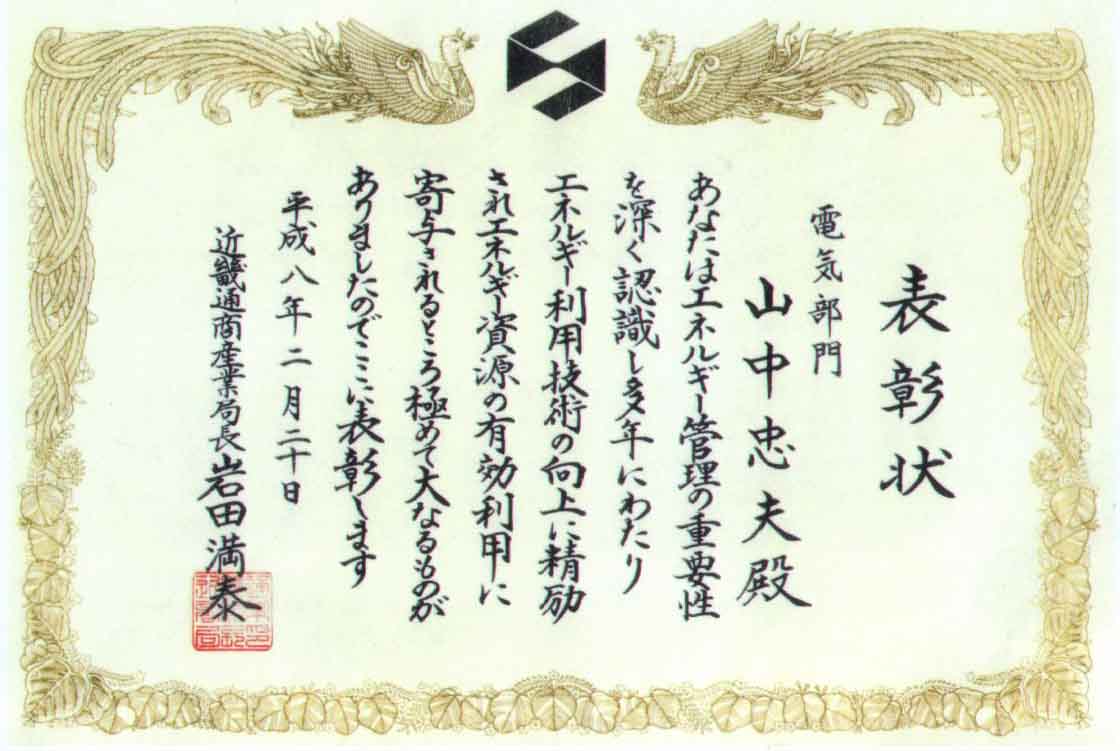 表彰状
電気部門
山中忠夫殿
あなたはエネルギー管理の重要性
を深く認識し多年にわたり
エネルギー利用技術の向上に精励
されエネルギー資源の有効利用に
寄与されるところ極めて大なるものが
ありましたのでここに表彰します
平成八年二月二十日
近畿通商産業局長岩田満泰